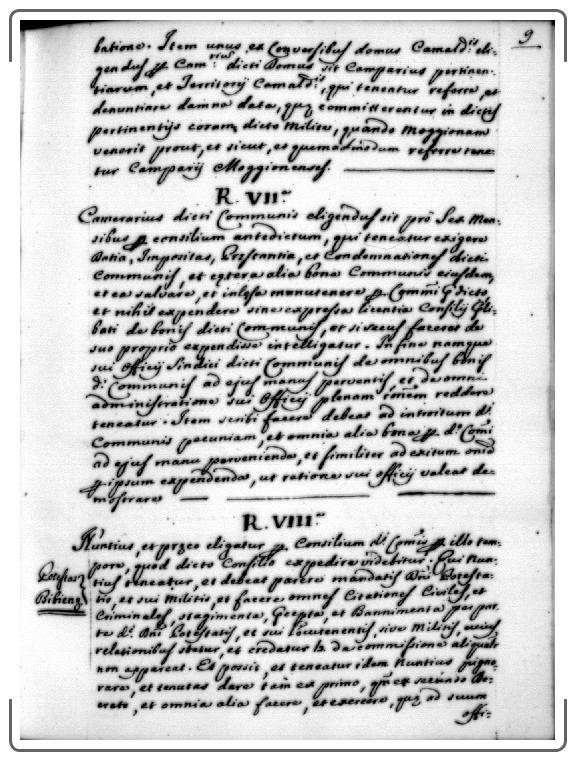 9
batione. Item unus ex Conversibus domus Camald.is eli-
gendus p Cam.rius dicti Domus sit Camparius pertinen-
tiarum, et Territorij Camald.is, qui teneatur referre, et
denuntiare damna data, quę committerentur in dictis
pertinentijs coram dicto Milite, quando Moggionam
venerit prout, et sicut, et quemadmodum referre tene-
tur Camparij Moggionenses.
R. VII.a
Camerarius dicti Communis eligendus sit prò sex Men-
sibus p consilium antedictum, qui teneatur exigere
Datia, Impositas, Pręstantia, et Condemnationes dicti
Communis, et cętera alia bona Communis eiusdem,
et ea salvare, et inlęsa manutenere p Com̃i dicto
et nihil expendere sine expressa licentia Consilij
bati de bonis dicti Communis, et si secus faceret de
suo proprio expendisse intelligatur. In fine namque
sui Officij Sindici dicti Communis de omnibus bonis
d.i Communis ad ejus manus perventis, et de omni
administratione sui Officij plenam rõnem reddere
teneatur. Item scribi facere debeat ad introitum d.i
Communis pecuniam, et omnia alia bona p d.o Com̃i
ad ejus manu pervenienda, et similiter ad exitum
p ipsum expendenda, ut ratione sui officij valeat de-
mostrare
R. VIII.a
Nuntius, et pręco eligatur p Consilium d.i Com̃is p illo tem-
pore, quod dicto Consilio expedire videbitur. Qui Nun-
Potestas
Bibienę
tius teneatur, et debeat parere mandatis Dñi Potesta-
tis, et sui Militis, et facere omnes Citationes Civiles, et
Criminales, stagimenta, Pręcepta, et Bannimenta pro par-
te d.i Dñi Potestatis, et sui locutenentis, sive Militis, cuius
relationibus stetur, et credatur lz de commissione aliqualr
non appareat. Et possit, et teneatur idem Nuntius pigno-
rare, et tenutas dare tam ex primo, qm̃ ex secundo De-
creto, et omnia alia facere, et exercere, quę ad suum
offi-